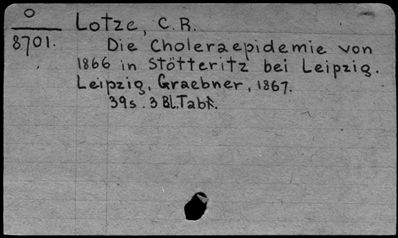 O
8701.
Lotze, C.R.
Die Choleraepidemie von
1866 in Stötteritz bei Leipzig.
Leipzig, Graebner, 1867.
39s. 3 Bl. Tab.